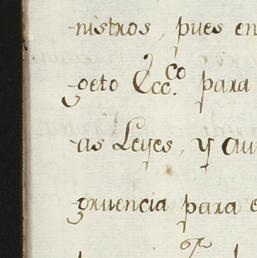 -nistros, pues en
-geto Ecc.co para
-as Leyes, y au
-gruencia para e